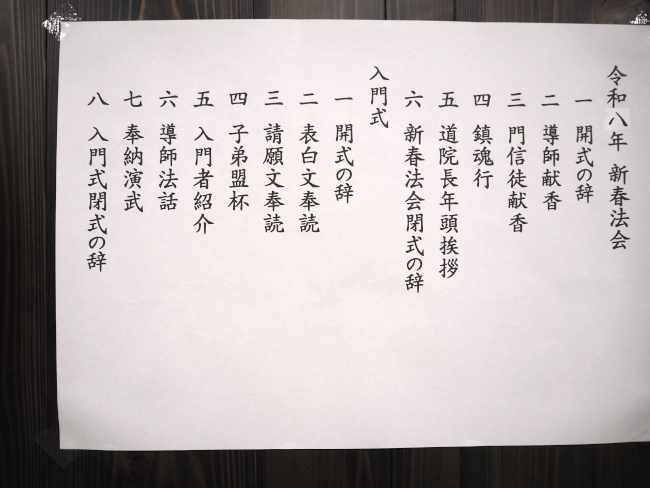 令和八年 新春法会
一 開式の辞
二 導師献香
三 門信徒献香
四 鎮魂行
五 道院長年頭挨拶
六 新春法会閉式の辞
入門式
一 開式の辞
二 表白文奉読
三 請願文奉読
四 子弟盟杯
五 入門者紹介
六 導師法話
七 奉納演武
八 入門式閉式の辞